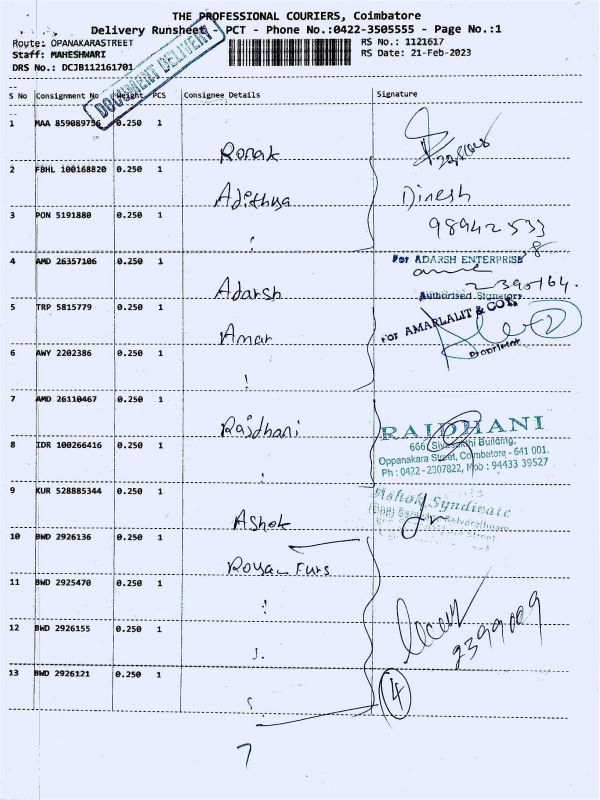 THE PROFESSIONAL COURIERS, Coimbatore
Delivery Runsheet - PCT - Phone No.:0422-3505555 - Page No.:1
Route: OPANAKARASTREET RS No.: 1121617
Staff: MAHESHWARI RS Date: 21-Feb-2023
DRS No.: DCJB112161701
DOCUMENT DELIVERY
S No Consignment No Weight PCS Consignee Details Signature
1 MAA 859089756 0.250 1 Ronak
2 FBHL 100168820 0.250 1 Adithya Dinesh
3 PON 5191880 0.250 1
4 AMD 26357106 0.250 1 Adarsh For ADARSH ENTERPRISE
Authorised Signatory
5 TRP 5815779 0.250 1 Amar For AMARLALIT & CO
Proprietor
6 AWY 2202386 0.250 1
7 AMD 26110467 0.250 1 Rajdhani RAJDHANI
8 IDR 100266416 0.250 1 Building,
Oppanakara Street, Coimbatore - 641 001.
Ph : 0422 - 2307822, Mob : 94433 39527
9 KUR 528885344 0.250 1 Ashok Ashok Syndicate
10 BWD 2926136 0.250 1 Royal Furs
11 BWD 2925470 0.250 1
12 BWD 2926155 0.250 1
2399009
13 BWD 2926121 0.250 1 4
7